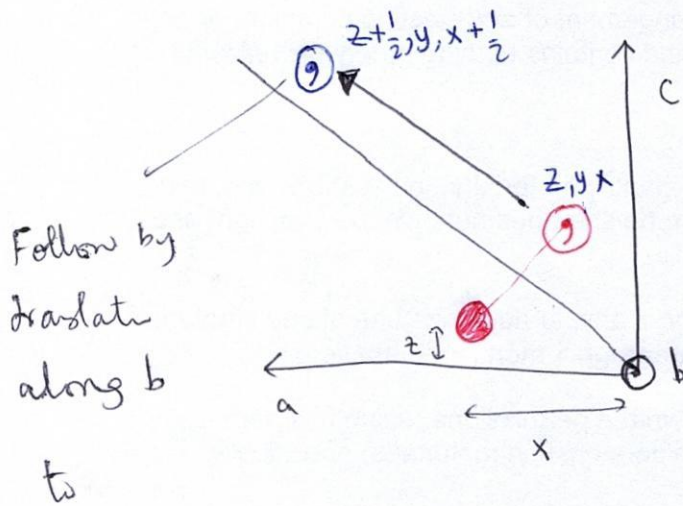 z+1/2, y, x+1/2
c
z, y x
Follow by
translate
along b
to
z
b
a
x